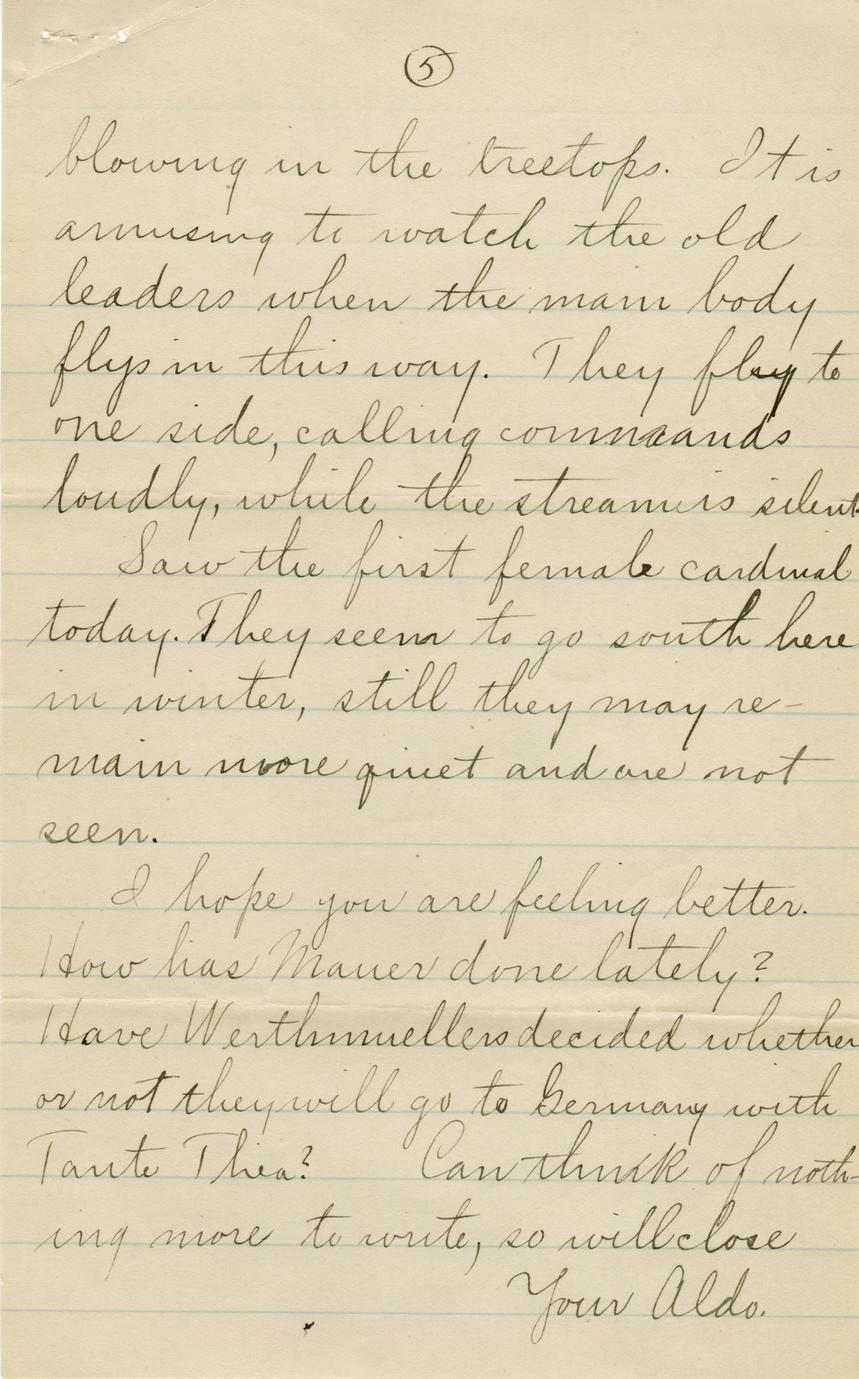 5
blowing in the treetops. It is
amusing to watch the old
leaders when the main body
flys in this way. They fly to
one side, calling commaands
loudly, while the stream is silent.
Saw the first female cardinal
today. They seem to go south here
in winter, still they may re-
main more quiet and are not
seen.
I hope you are feeling better.
How has Mauer done lately?
Have Werthmuellers decided whether
or not they will go to Germany with
Tante Thea? Can think of noth-
ing more to write, so will close
Your Aldo.